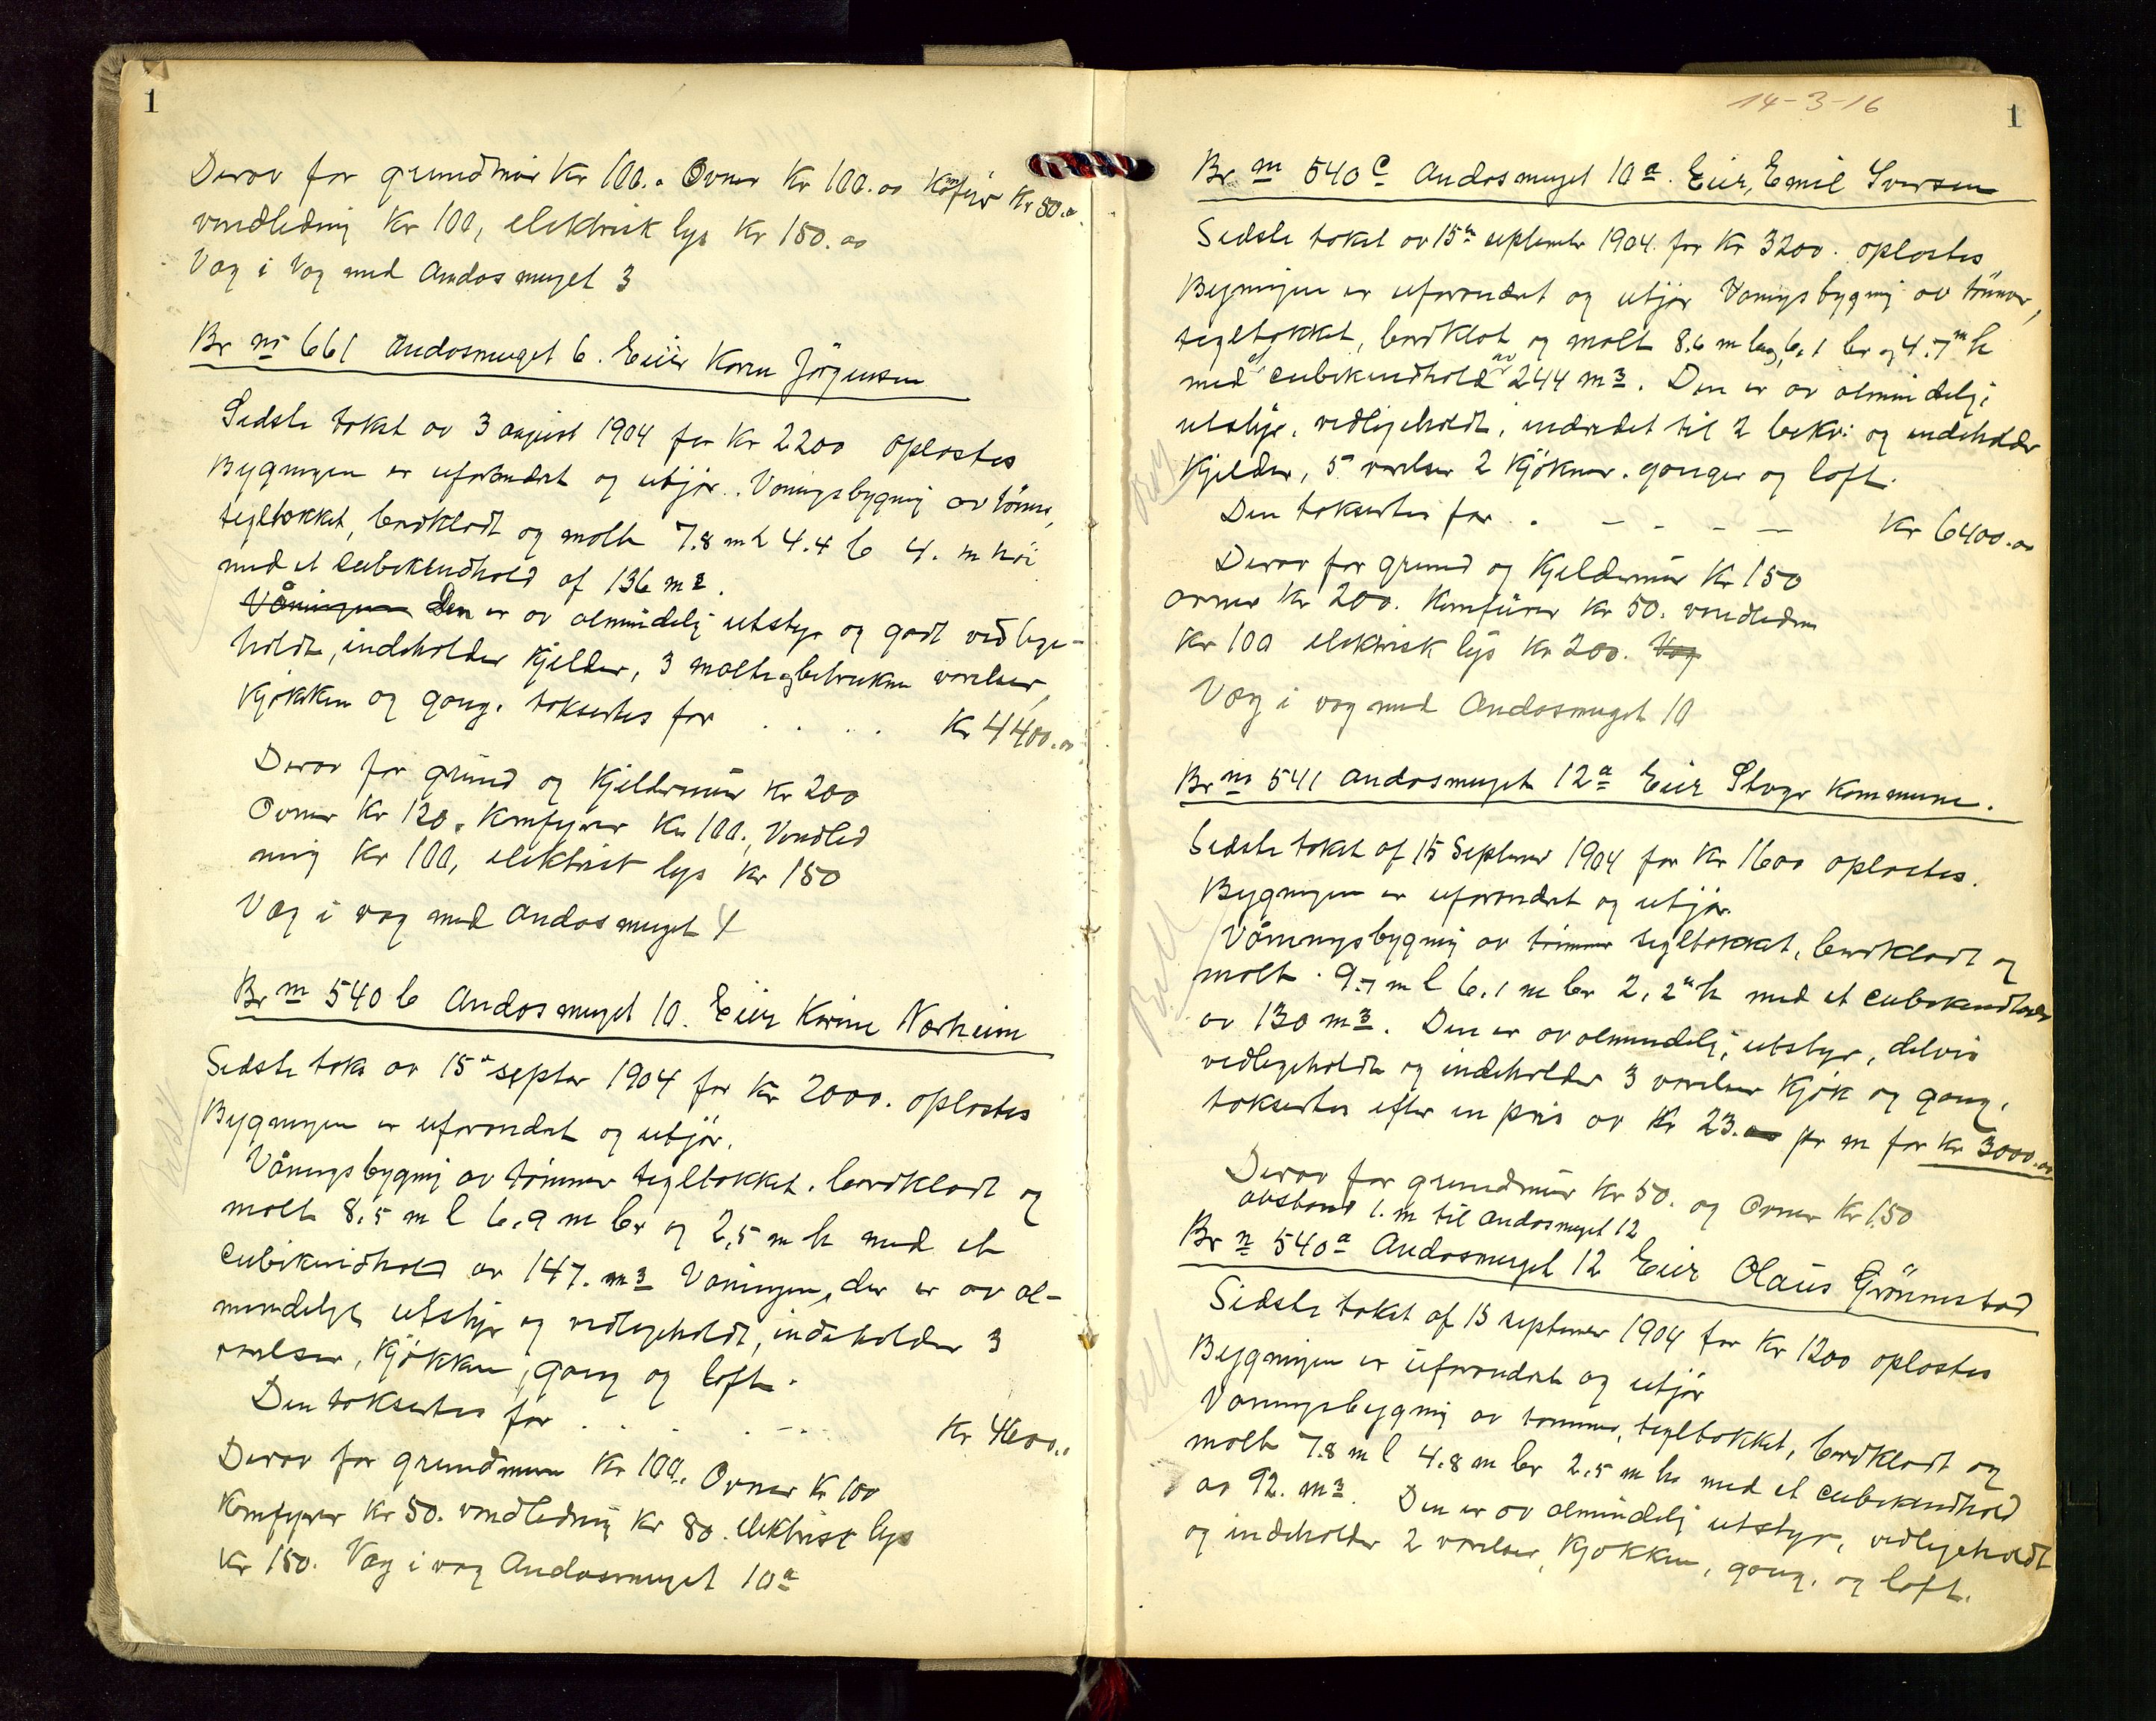 1
Derav for grundmur Kr 100.- Ovner Kr 100.00 Komfyr Kr 50.00
vandledning Kr 100, elektrisk lys Kr 150.00
Væg i Væg med Andasmuget 3
Br no 661 Andasmuget 6. Eier Karen Jörgensen
Sidste takst av 3 august 1904 for Kr 2200 oplæstes
Bygningen er uforandret og utgjör. Vaaningsbygning av tömmer,
tegltækket, bordklædt og malt 7.8 m l 4.4 b 4. m höi
med et Cubikindhold af 136 m3.
Våningen Den er av almindelig utstyr og godt vedlige-
holdt, indeholder Kjelder, 3 malte og betrukne værelser,
Kjökken og gang. taksertes for . . . . Kr 4400.00
Derav for grund og Kjeldermur Kr 200
Ovner Kr 120. Komfyrer Kr 100. Vandled
ning Kr 100, elektrisk lys Kr 150
Væg i væg med Andasmuget 4
Br no 540 b Andasmuget 10. Eier Karine Norheim
Sidste takst av 15de septbr 1904 for Kr 2000. oplæstes
Bygningen er uforandret og utgjör.
Våningsbygning av tömmer tegltækket, bordklædt og
malt 8,5 m l 6,9 m br og 2,5 m h med et
Cubikindhold av 147. m3 Våningen, der er av al-
mindeligt utstyr og vedligeholdt, indeholder 3
værelser, Kjökken, gang og loft.
Den taksertes for . . . . . Kr 4600.-
Derav for grundmur Kr 100. Ovner Kr 100
Komfyrer Kr 50. vandledning Kr 80. elektrisk lys
Kr 150. Væg i væg Andasmuget 10a
14-3-16
1
Br no 540 c Andasmuget 10a. Eier, Emil Iversen
Sidste takst av 15de september 1904. for Kr 3200. oplæstes
Bygningen er uforandret og utgjör Vaningsbygning av tömmer,
tegltækket, bordklæt og malt 8.6 m lag, 6,1 br og 4.7 m h
med et cubikindhold av 244 m3. Den er av almindelig
utstyr, vedligeholdt, indredet til 2 bekv: og indeholder
Kjelder, 5 værelser 2 Kjökner. ganger og loft.
Den taksertes for . - - - - Kr 6400.00
Derav for grund og Kjeldermur Kr 150
ovner Kr 200. Komfürer Kr 50. vandledn
Kr 100 elektrisk lys Kr 200. Væg
Væg i væg med Andasmuget 10
Br no 541 Andasmuget 12a Eier Stvgr Kommune.
Sidste takst af 15 September 1904 for Kr 1600 oplæstes.
Bygningen er uforandret og utgjör
Våningsbygning av tömmer tegltækket, bordklædt og
malt. 9.7 m l 6,1 m br 2,2 m h med et cubikindhold
av 130 m3. Den er av almindelig, utstyr, delvis
vedligeholdt og indeholder 3 værelser Kjök og gang.
taksertes efter en pris av Kr 23.00 pr m for Kr 3000.00
Derav for grundmur Kr 50. og Ovner Kr 150
avstand 1. m til Andasmuget 12
Br no 540a Andasmuget 12 Eier Olaus Grönnestad
Sidste takst af 15 september 1904 for Kr 1200 oplæstes
Bygningen er uforandret og utgjör
Vaningsbygning av tømmer, tegltækket, bordklædt og
malt 7.8 m l 4.8 m br 2.5 m h med et cubikindhold
av 92. m3. Den er av almindelig utstyr, vedligeholdt
og indeholder 2 værelser, Kjøkken, gang. og loft.